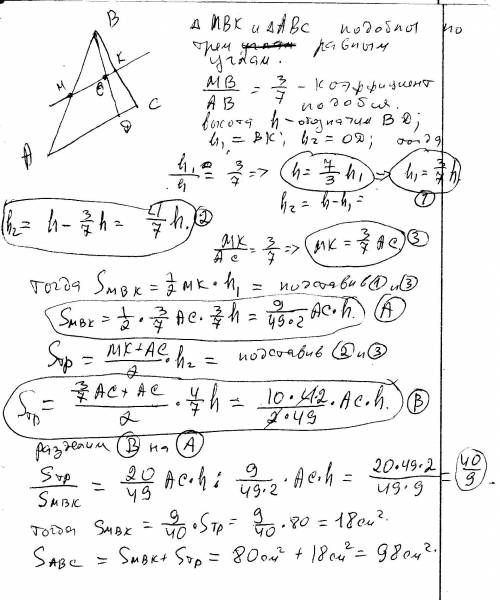 B
M
K
O
C
D
A
Δ MBK и ΔABC подобны по
трем равным
углам.
MB/AB = 3/7 - коэффициент
подобия.
высота h - обозначим BD;
h₁ = BK; h₂ = OD; тогда
h₁/h = 3/7 => h = 7/3 h₁ => h₁ = 3/7 h. ①
h₂ = h - h₁ =
h₂ = h - 3/7 h = 4/7 h. ②
MK/AC = 3/7 => MK = 3/7 AC ③
тогда S_MBK = 1/2 MK · h₁ = подставив ① и ③
S_MBK = 1/2 · 3/7 AC · 3/7 h = 9/49·2 AC · h. Ⓐ
Sтр = MK + AC/2 · h₂ = подставив ② и ③
Sтр = 3/7 AC + AC/2 · 4/7 h = 10 · 4 2/2 · 49 · AC · h. Ⓑ
разделим Ⓑ на Ⓐ
Sтр/S_MBK = 20/49 AC · h : 9/49·2 · AC · h = 20 · 49 · 2/49 · 9 = 40/9.
тогда S_MBK = 9/40 · Sтр = 9/40 · 80 = 18 см²
S_ABC = S_MBK + Sтр = 80 см² + 18 см² = 98 см².